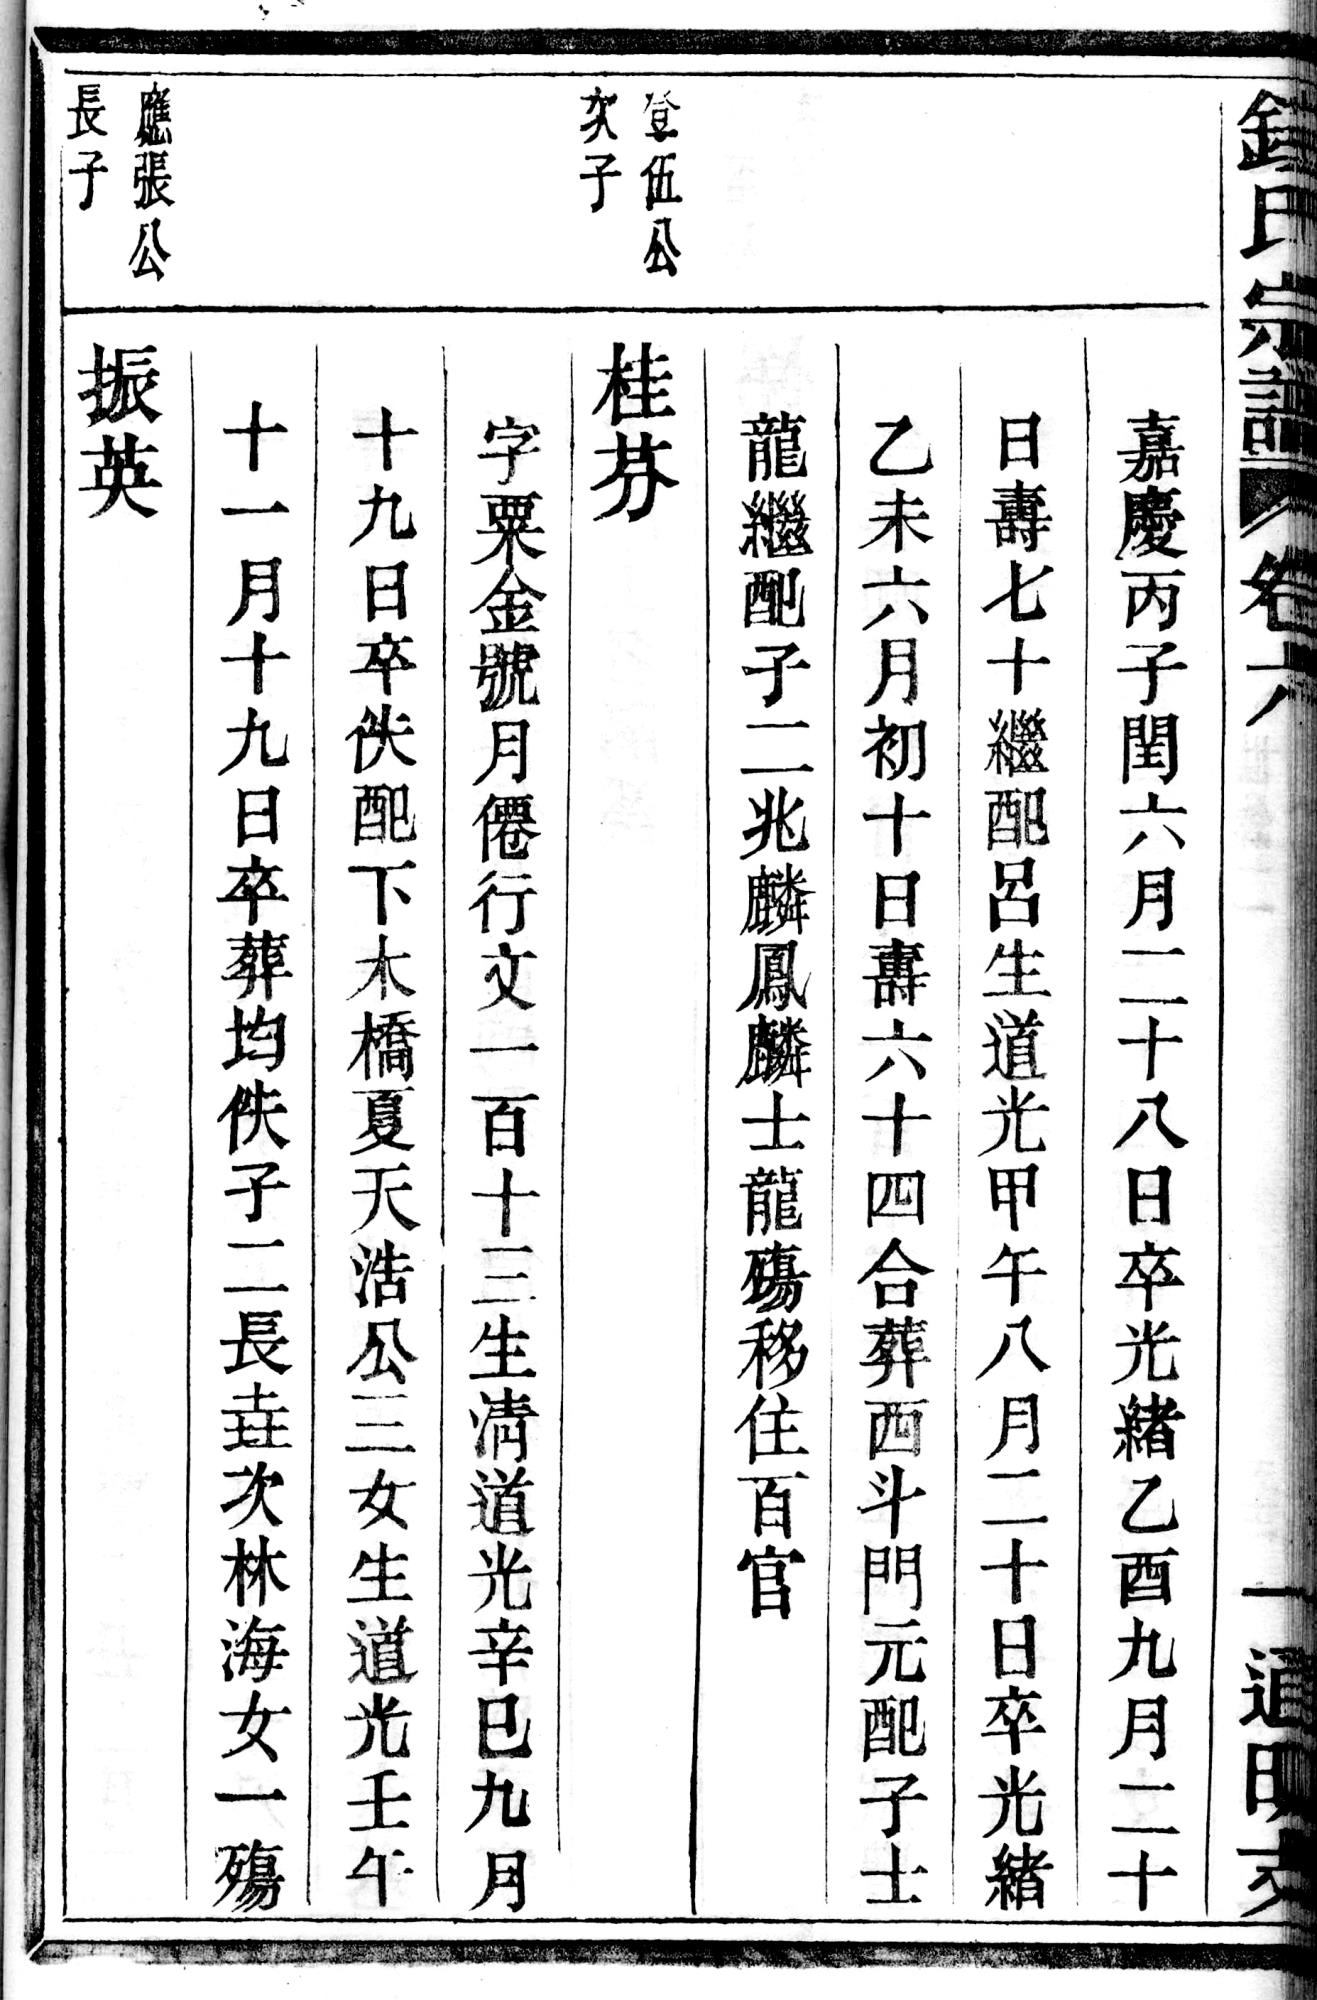 氏宗譜 卷六 一 道明支
嘉慶丙子閏六月二十八日卒光緒乙酉九月二十
日壽七十繼配呂生道光甲午八月二十日卒光緒
乙未六月初十日壽六十四合葬西斗門元配子士
龍繼配子二兆麟鳳麟士龍殤移住百官
登伍公
次子
桂芬
字粟金號月僊行文一百十三生清道光辛巳九月
十九日卒佚配下木橋夏天浩公三女生道光壬午
十一月十九日卒葬均佚子二長垚次林海女一殤
應張公
長子
振英